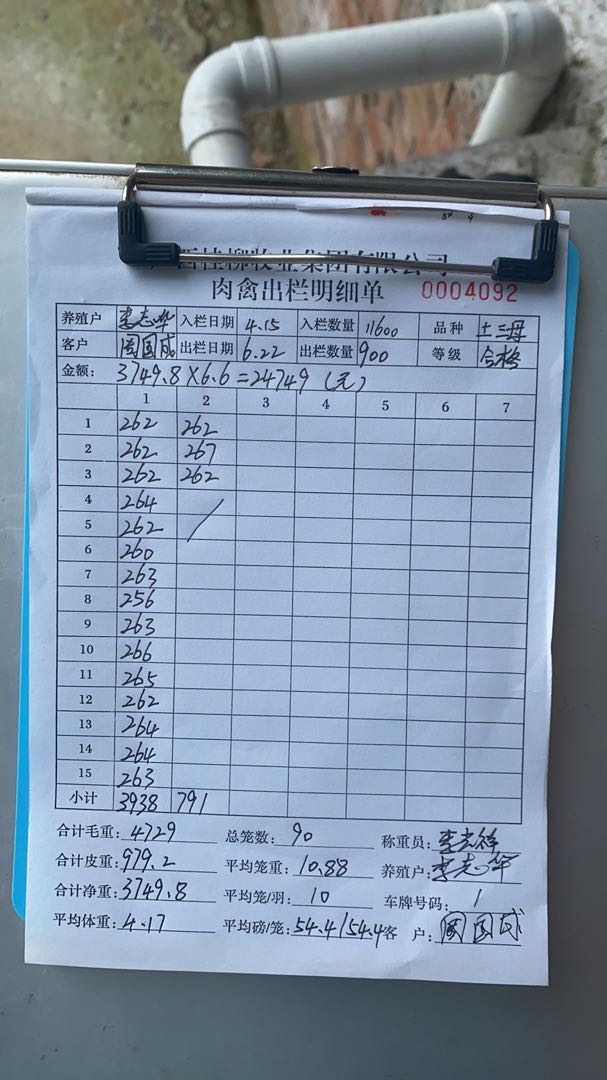 西桂柳牧业集团有限公司
肉禽出栏明细单 0004092
养殖户 李志华 入栏日期 4.15 入栏数量 11600 品种 土三母
客户 阎国成 出栏日期 6.22 出栏数量 900 等级 合格
金额: 3749.8×6.6=24749 (元)
1 2 3 4 5 6 7
1 262 262
2 262 267
3 262 262
4 264
5 262
6 260
7 263
8 256
9 263
10 266
11 265
12 262
13 264
14 264
15 263
小计 3938 791
合计毛重: 4729 总笼数: 90 称重员: 李光祥
合计皮重: 979.2 平均笼重: 10.88 养殖户: 李志华
合计净重: 3749.8 平均笼/羽: 10 车牌号码: 1
平均体重: 4.17 平均磅/笼: 54.4/54.4 客户: 阎国成